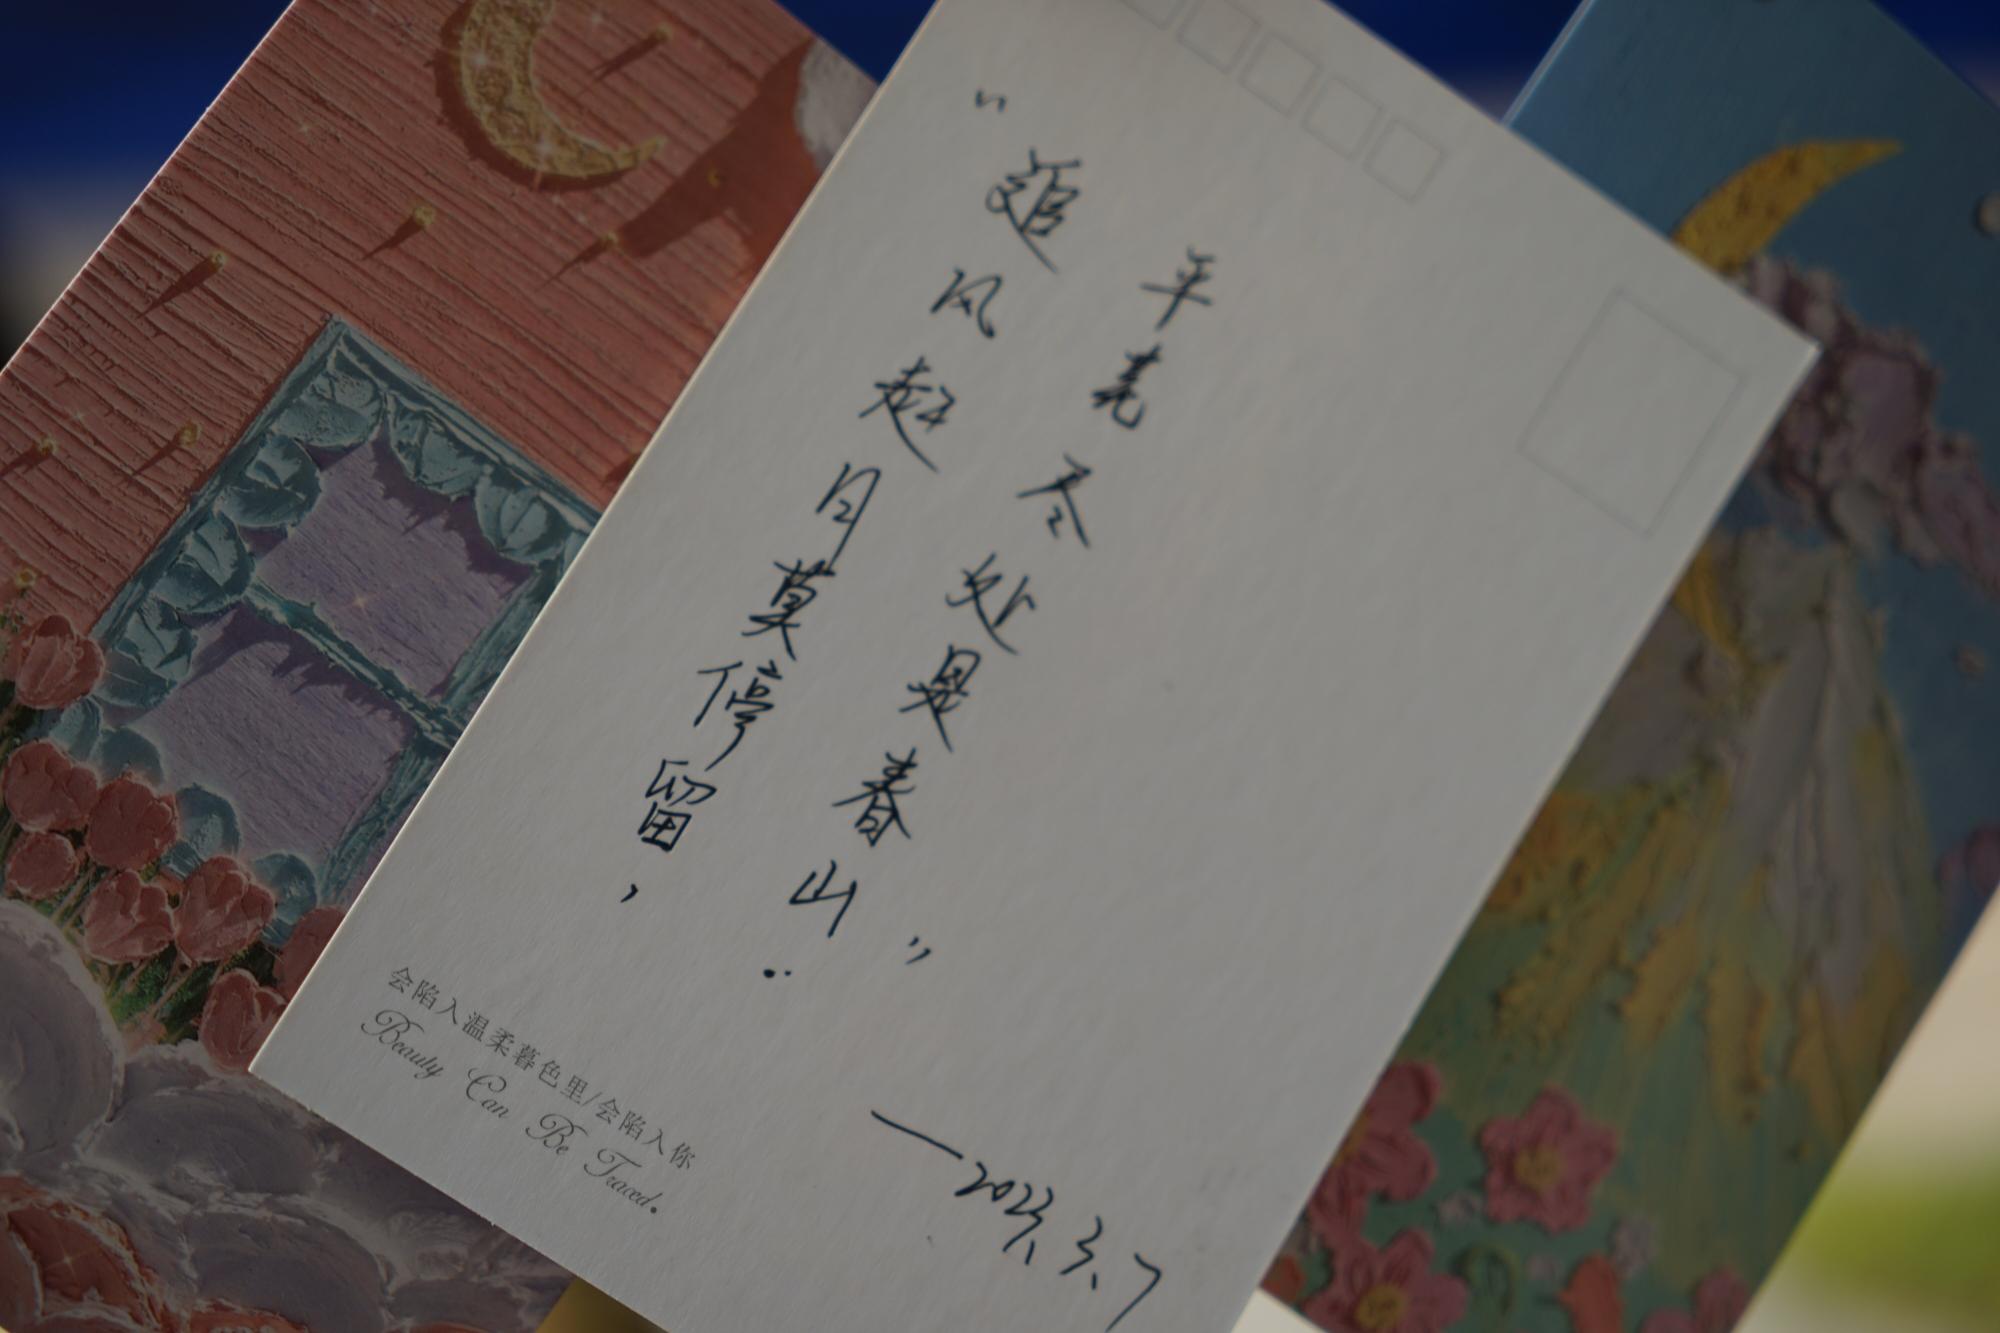 “追风赶月莫停留，
平芜尽处是春山”.
——2023.3.7
会陷入温柔暮色里/会陷入你
Beauty Can Be Traced.